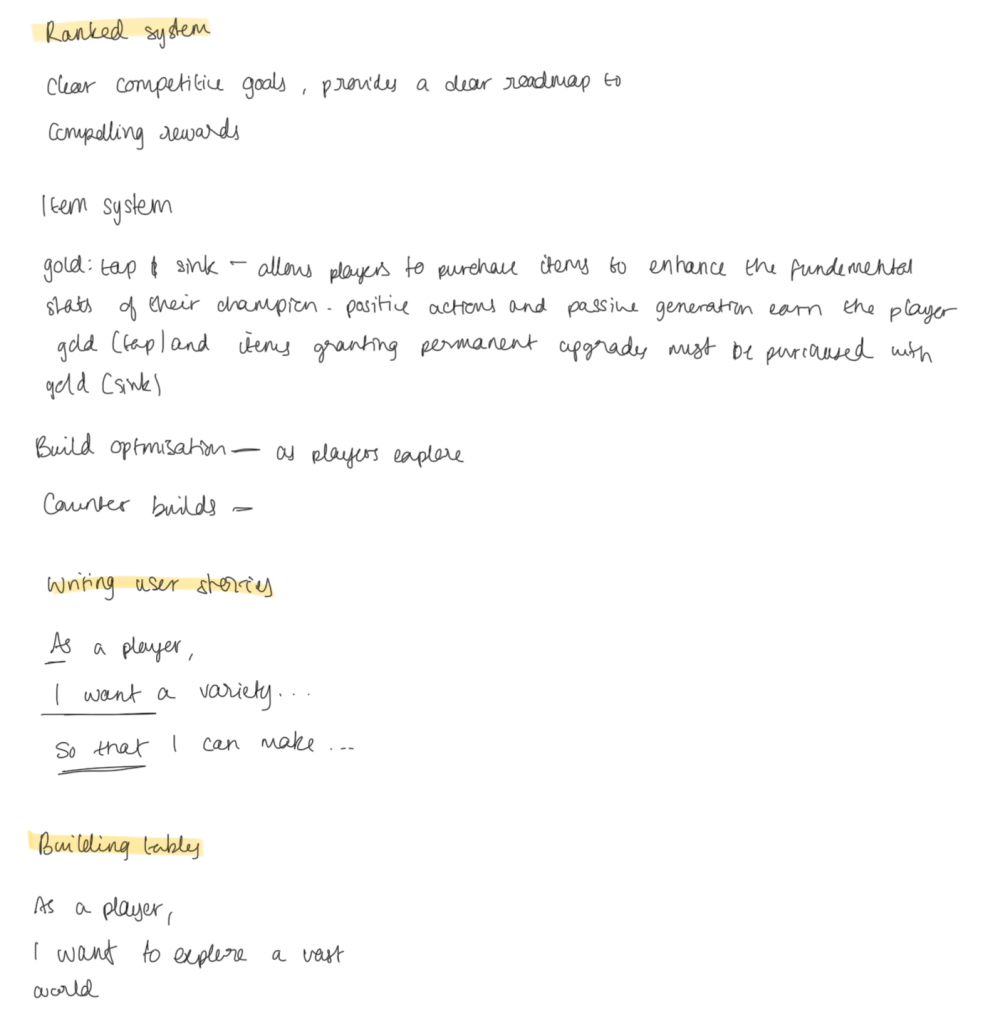 Ranked system
Clear competitive goals, provides a clear roadmap to
Compelling rewards
Item system
gold: tap & sink – allows players to purchase items to enhance the fundemental
stats of their champion. positive actions and passive generation earn the player
gold (tap) and items granting permanent upgrades must be purchased with
gold (sink)
Build optimisation — as players explore
Counter builds –
Writing user stories
As a player,
I want a variety...
So that I can make ...
Building tables
As a player,
I want to explore a vast
world